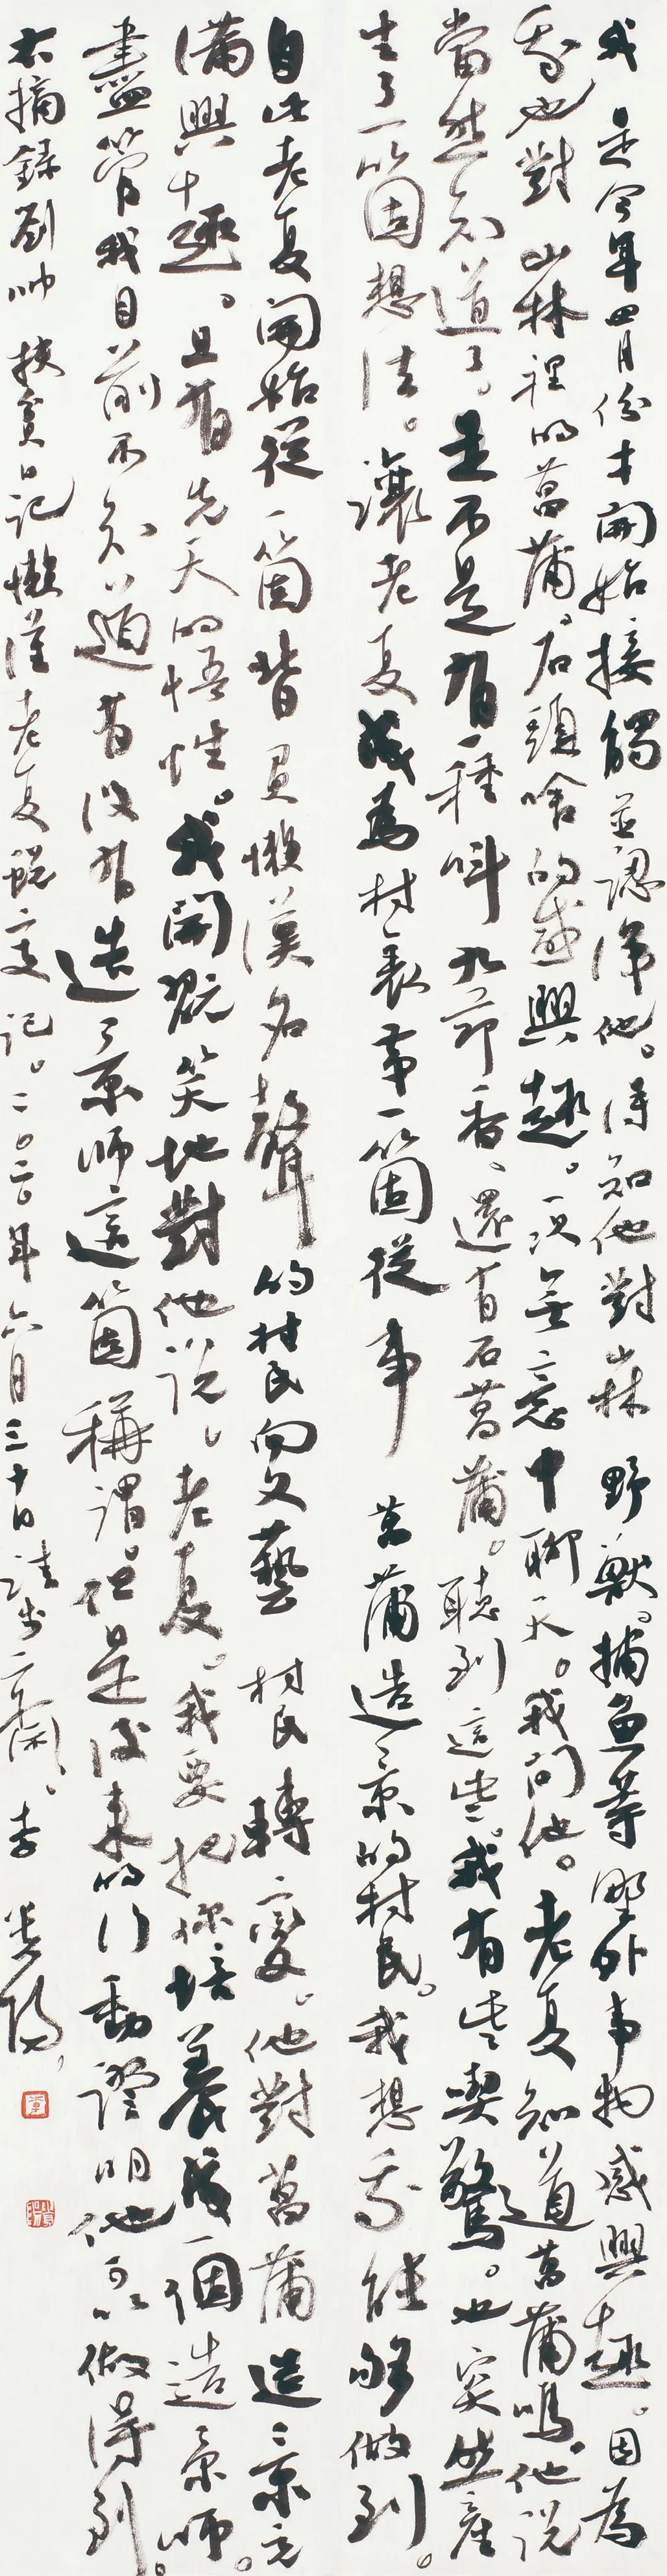 我是今年四月份才開始接觸並認識他。得知他對山林野獸。捕魚等野外事物感興趣。因為
我也對山林裡的菖蒲。石頭啥的感興趣。一次無意中聊天。我問他。老夏知道菖蒲嗎。他說
當然知道了。是不是有一種叫九節香、還有石菖蒲。聽到這些。我有些喫驚。也突然產
生了一箇想法。讓老夏成為村裏第一箇從事菖蒲造景的村民。我想我能夠做到。
自此老夏開始從一箇背負懶漢名聲的村民向文藝村民轉變。他對菖蒲造景充
滿興趣。且有先天的悟性。我開玩笑地對他說。老夏。我要把你培養成一個造景師。
盡管我目前不知道有沒有造景師這箇稱謂。但是後來的行動證明他可以做得到。
右摘錄劉帥扶貧日記懶漢老夏蛻變記。二〇二〇年六月三十日